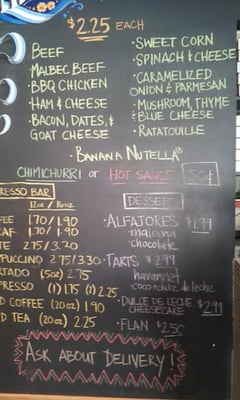 $2.25 EACH
BEEF
MALBEC BEEF
BBQ CHICKEN
HAM & CHEESE
BACON, DATES, &
GOAT CHEESE
• SWEET CORN
• SPINACH & CHEESE
• CARAMELIZED
ONION & PARMESAN
• MUSHROOM, THYME
& BLUE CHEESE
• RATATOUILLE
• BANANA NUTELLA®
CHIMICHURRI or HOT SAUCE 50¢
RESSO BAR
12oz / 16oz
FEE 1.70 / 1.90
AF 1.70 / 1.90
TE 2.75 / 3.20
PUCCINO 2.75 / 3.30
TADO (5oz) 2.75
PRESSO (1) 1.75 (2) 2.25
D COFFEE (20oz) 1.90
D TEA (20oz) 2.25
DESSERTS
• ALFAJORES $1.99
• maicena
• chocolate
• TARTS $2.99
havannet
coco + dulce de leche
• DULCE DE LECHE $2.99
CHEESECAKE
• FLAN $2.50
ASK ABOUT DELIVERY!